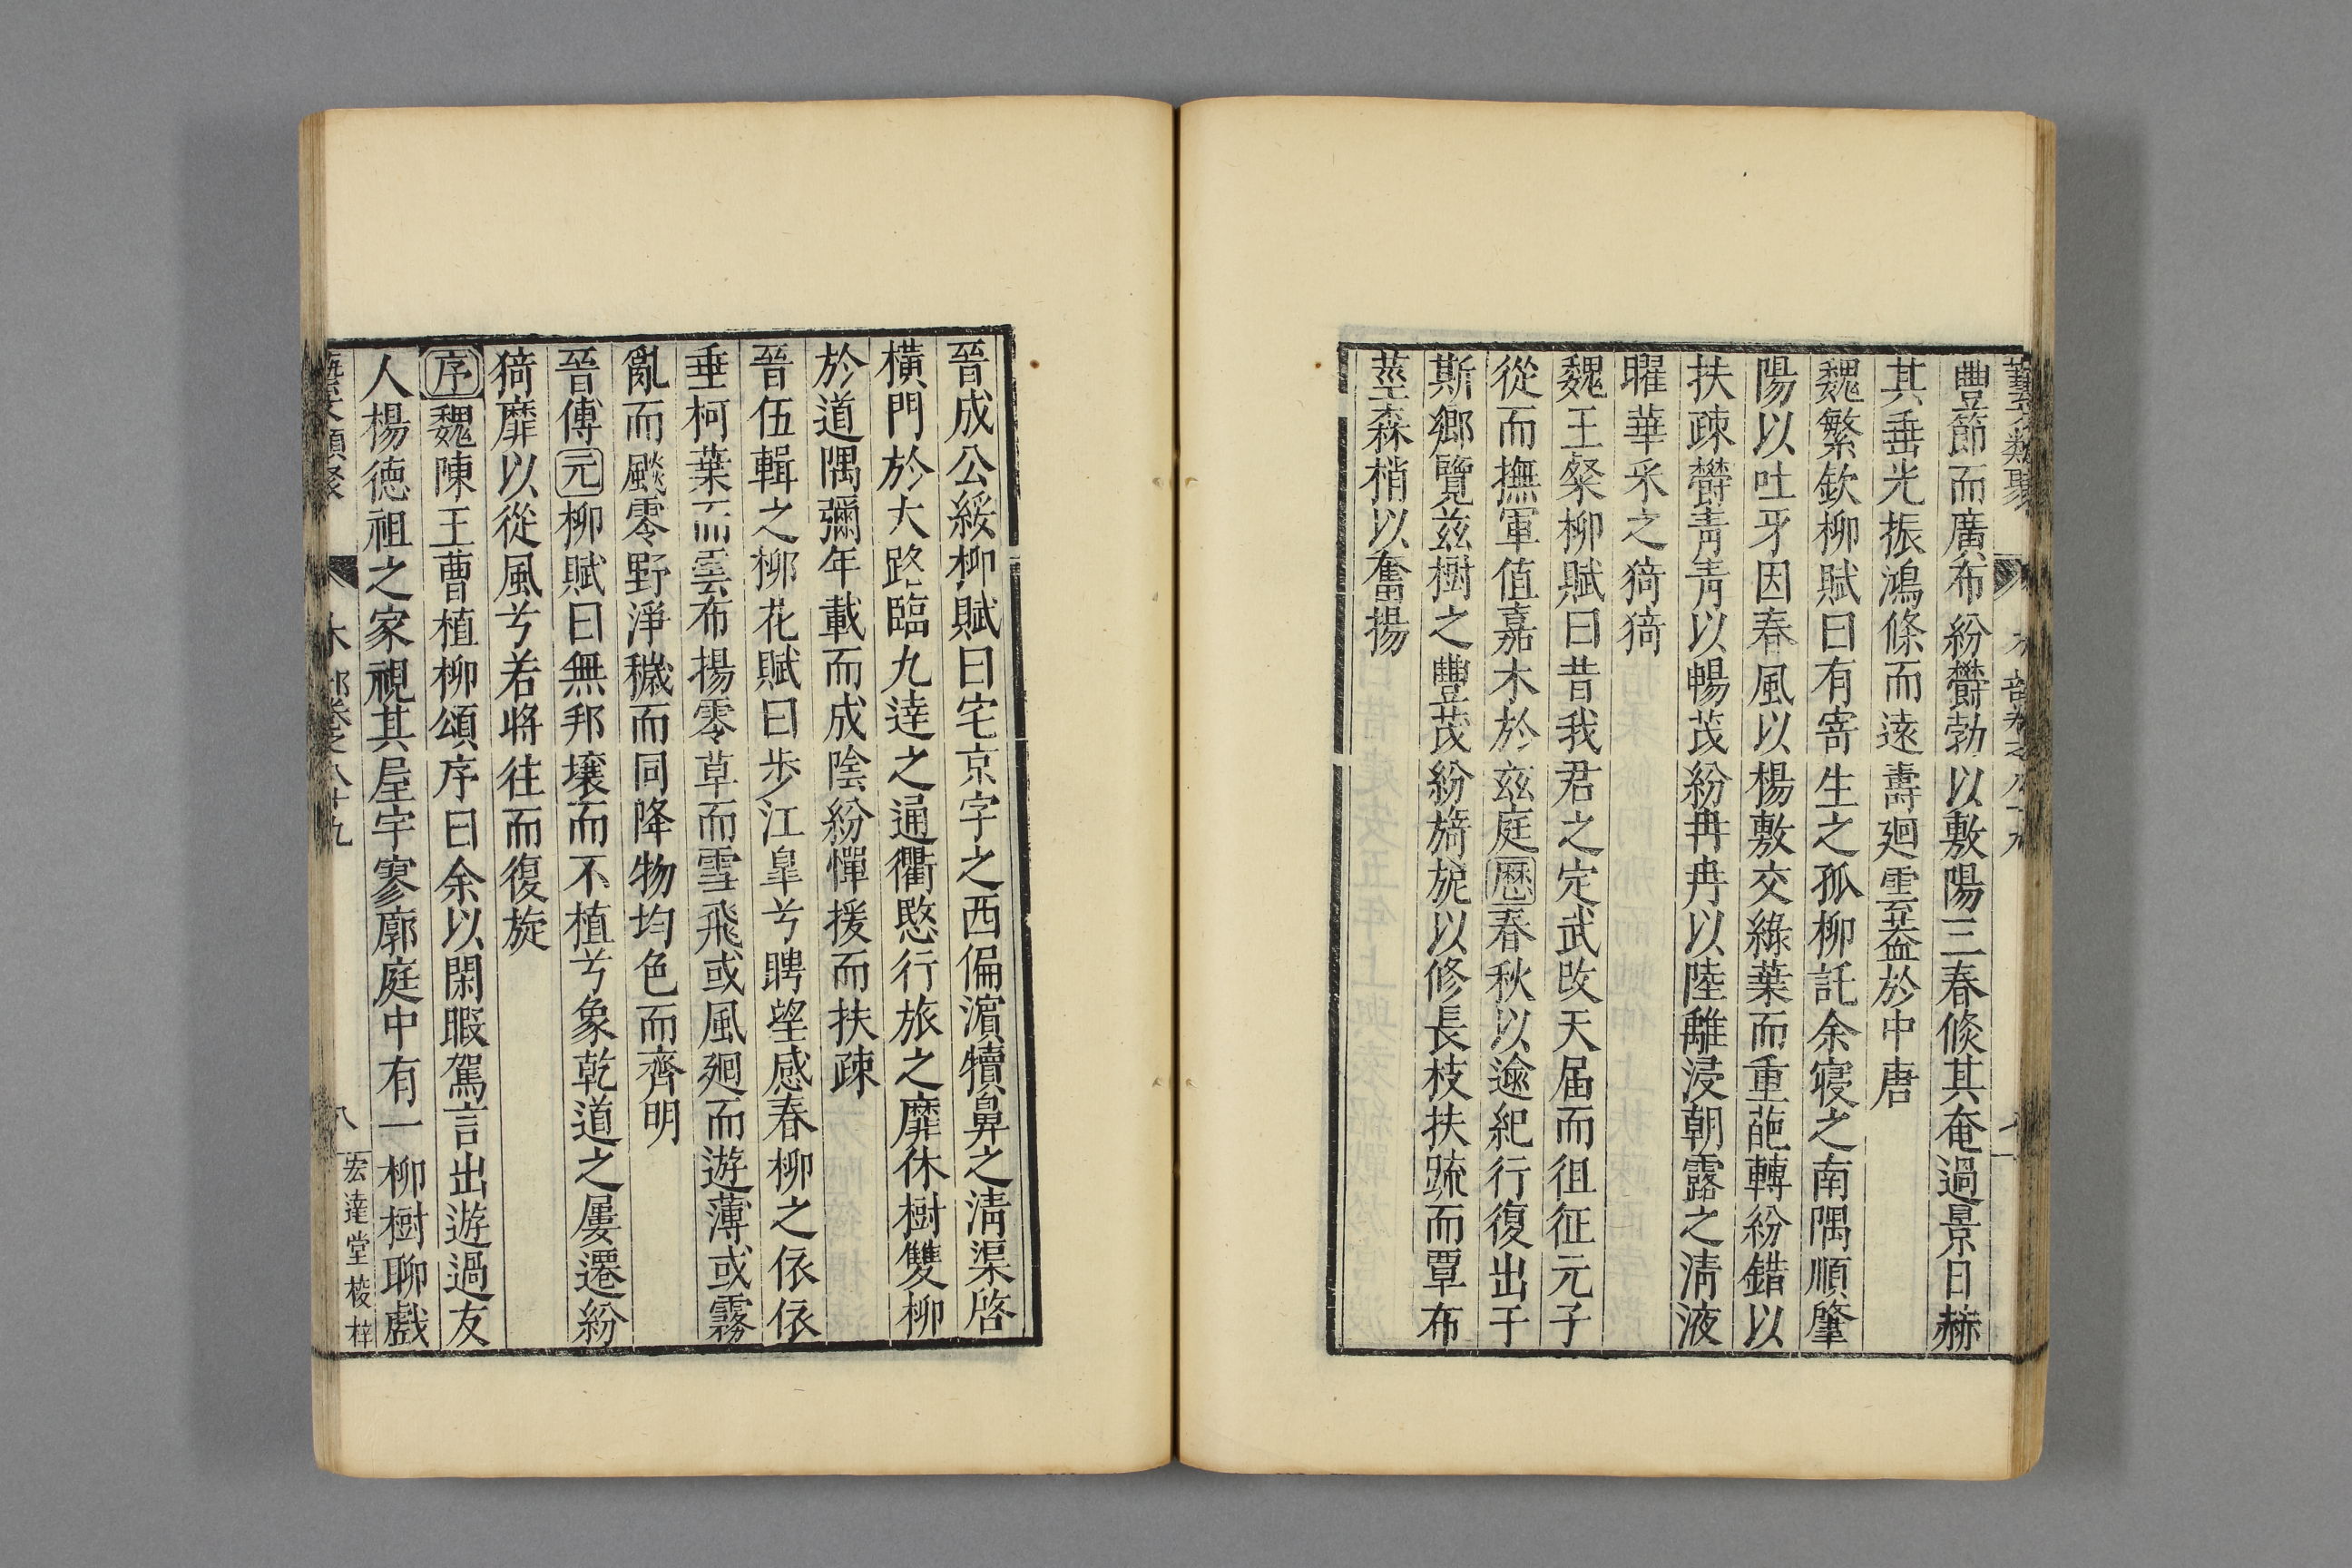 豐節而廣布紛欝勃以敷陽三春倐其奄過景日赫
其垂光振鴻條而遠壽廻雲葢於中唐
魏繁欽柳賦曰有寄生之孤柳託余寝之南隅順肇
陽以吐牙因春風以楊敷交綠葉而重葩轉紛錯以
扶疎欝青青以暢茂紛冉冉以陸離浸朝露之清液
曜華采之猗猗
魏王粲柳賦曰昔我君之定武改天届而徂征元子
從而撫軍值嘉木於兹庭歷春秋以逾紀行復出于
斯鄉覽兹樹之豐茂紛旖旎以修長枝扶疏而覃布
莖森梢以奮揚
晉成公綏柳賦曰宅京宇之西偏濵犢鼻之清渠啓
橫門於大路臨九逹之通衢愍行旅之靡休樹雙柳
於道隅彌年載而成陰紛憚援而扶疎
晉伍輯之柳花賦曰步江臯兮聘望感春柳之依依
垂柯葉而雲布揚零草而雪飛或風廻而遊薄或霧
亂而飈零野淨穢而同降物均色而齊明
晉傅元柳賦曰無邦壤而不植兮象乾道之屢遷紛
猗靡以從風兮若將往而復旋
序魏陳王曹植柳頌序曰余以閑暇駕言出遊過友
人楊德祖之家視其屋宇寥廓庭中有一柳樹聊戲
藝文類聚 木部卷之八十九 八 宏逹堂梓